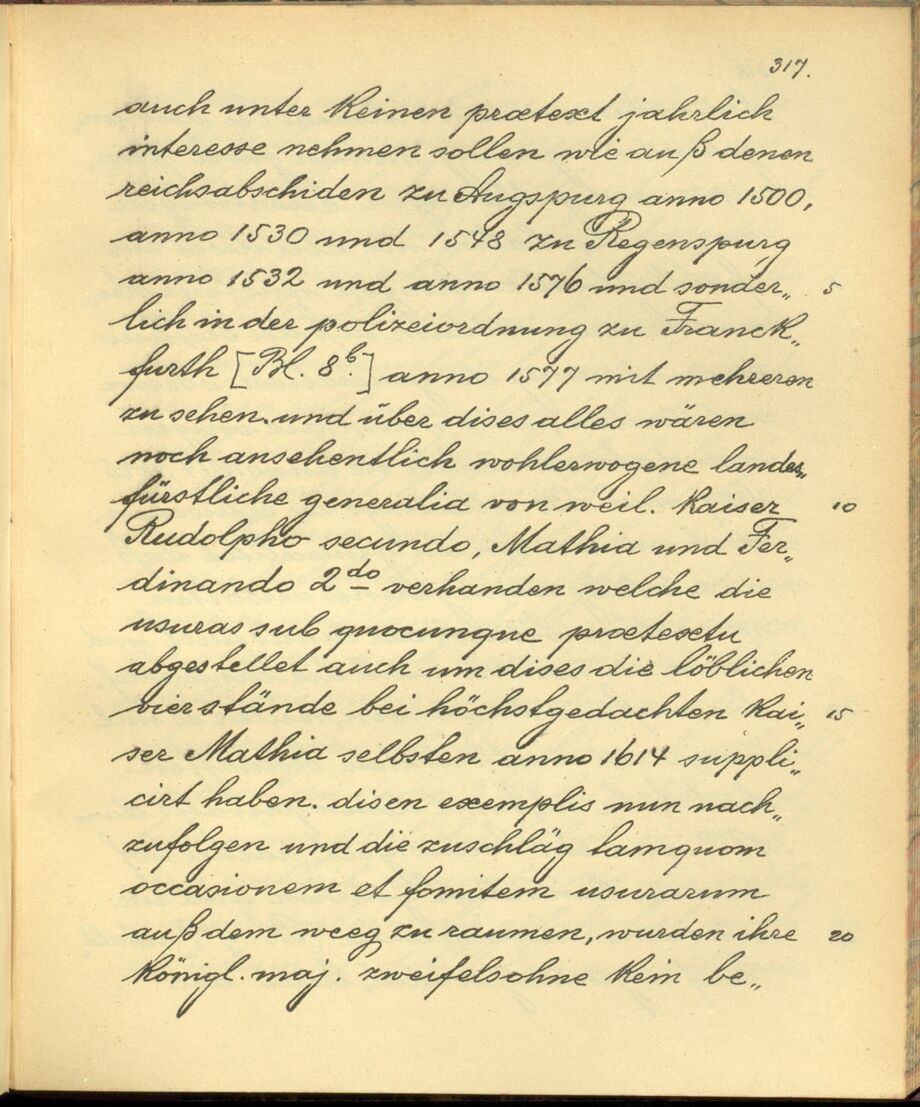 317.
auch unter keinen prætext jahrlich
interesse nehmen sollen wie auß denen
reichsabschiden zu Augspurg anno 1500,
anno 1530 und 1548 zu Regenspurg
anno 1532 und anno 1576 und sonder„ 5
lich in der polizeiordnung zu Franck„
furth [Bl. 8b.] anno 1577 mit mehreren
zu sehen. und über dises alles wären
noch ansehentlich wohlerwogene landes„
fürstliche generalia von weil. kaiser 10
Rudolpho secundo, Mathia und Fer„
dinando 2do verhanden welche die
usuras sub quocunque prætextu
abgestellet auch um dises die löblichen
vier stände bei höchstgedachten kai„ 15
ser Mathia selbsten anno 1614 suppli„
cirt haben. disen exemplis nun nach„
zufolgen und die zuschläg tamquam
occasionem et fomitem usurarum
auß dem weeg zu raumen, wurden ihre 20
königl. maj. zweifelsohne kein be„